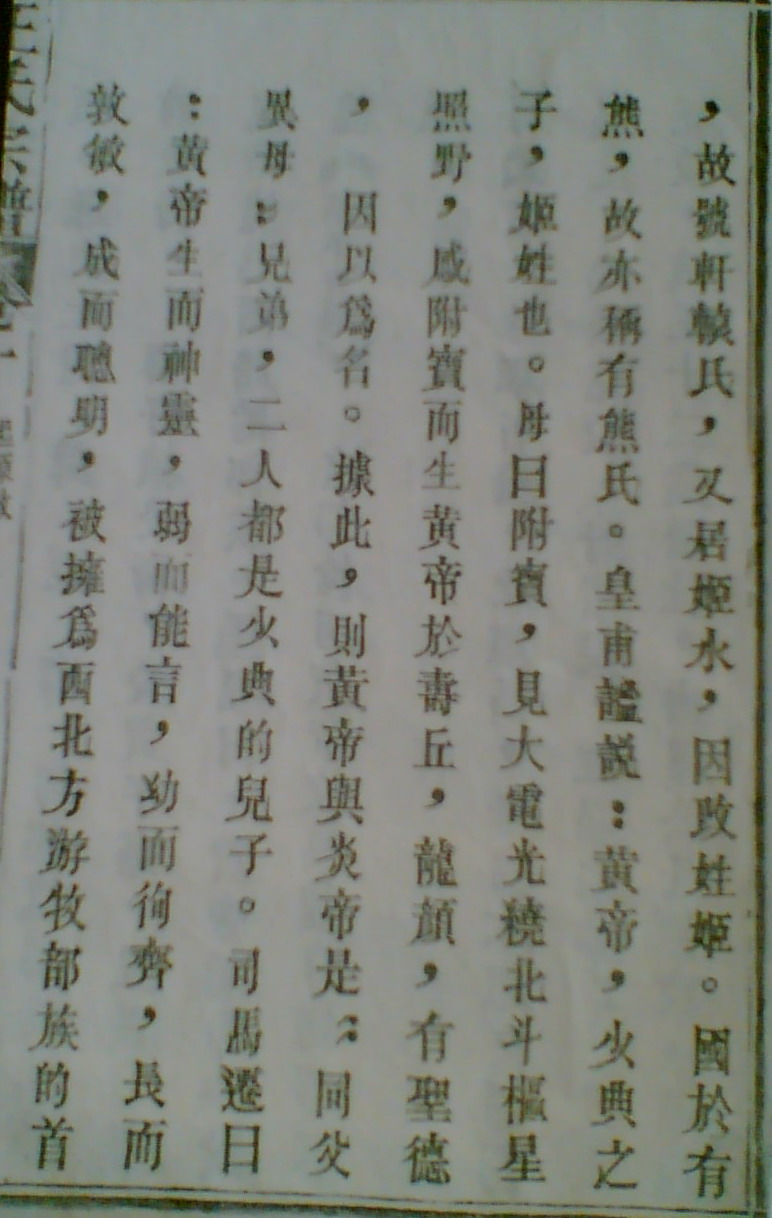 ，故號軒轅氏，又居姬水，因改姓姬。國於有
熊，故亦稱有熊氏。皇甫謐説：黃帝，少典之
子，姬姓也。母曰附寶，見大電光繞北斗樞星
照野，感附寶而生黃帝於壽丘，龍顔，有聖德
，因以爲名。據此，則黃帝與炎帝是：同父
異母：兄弟，二人都是少典的兒子。司馬遷曰
：黃帝生而神靈，弱而能言，幼而徇齊，長而
敦敏，成而聰明，被擁爲西北方游牧部族的首
氏宗譜